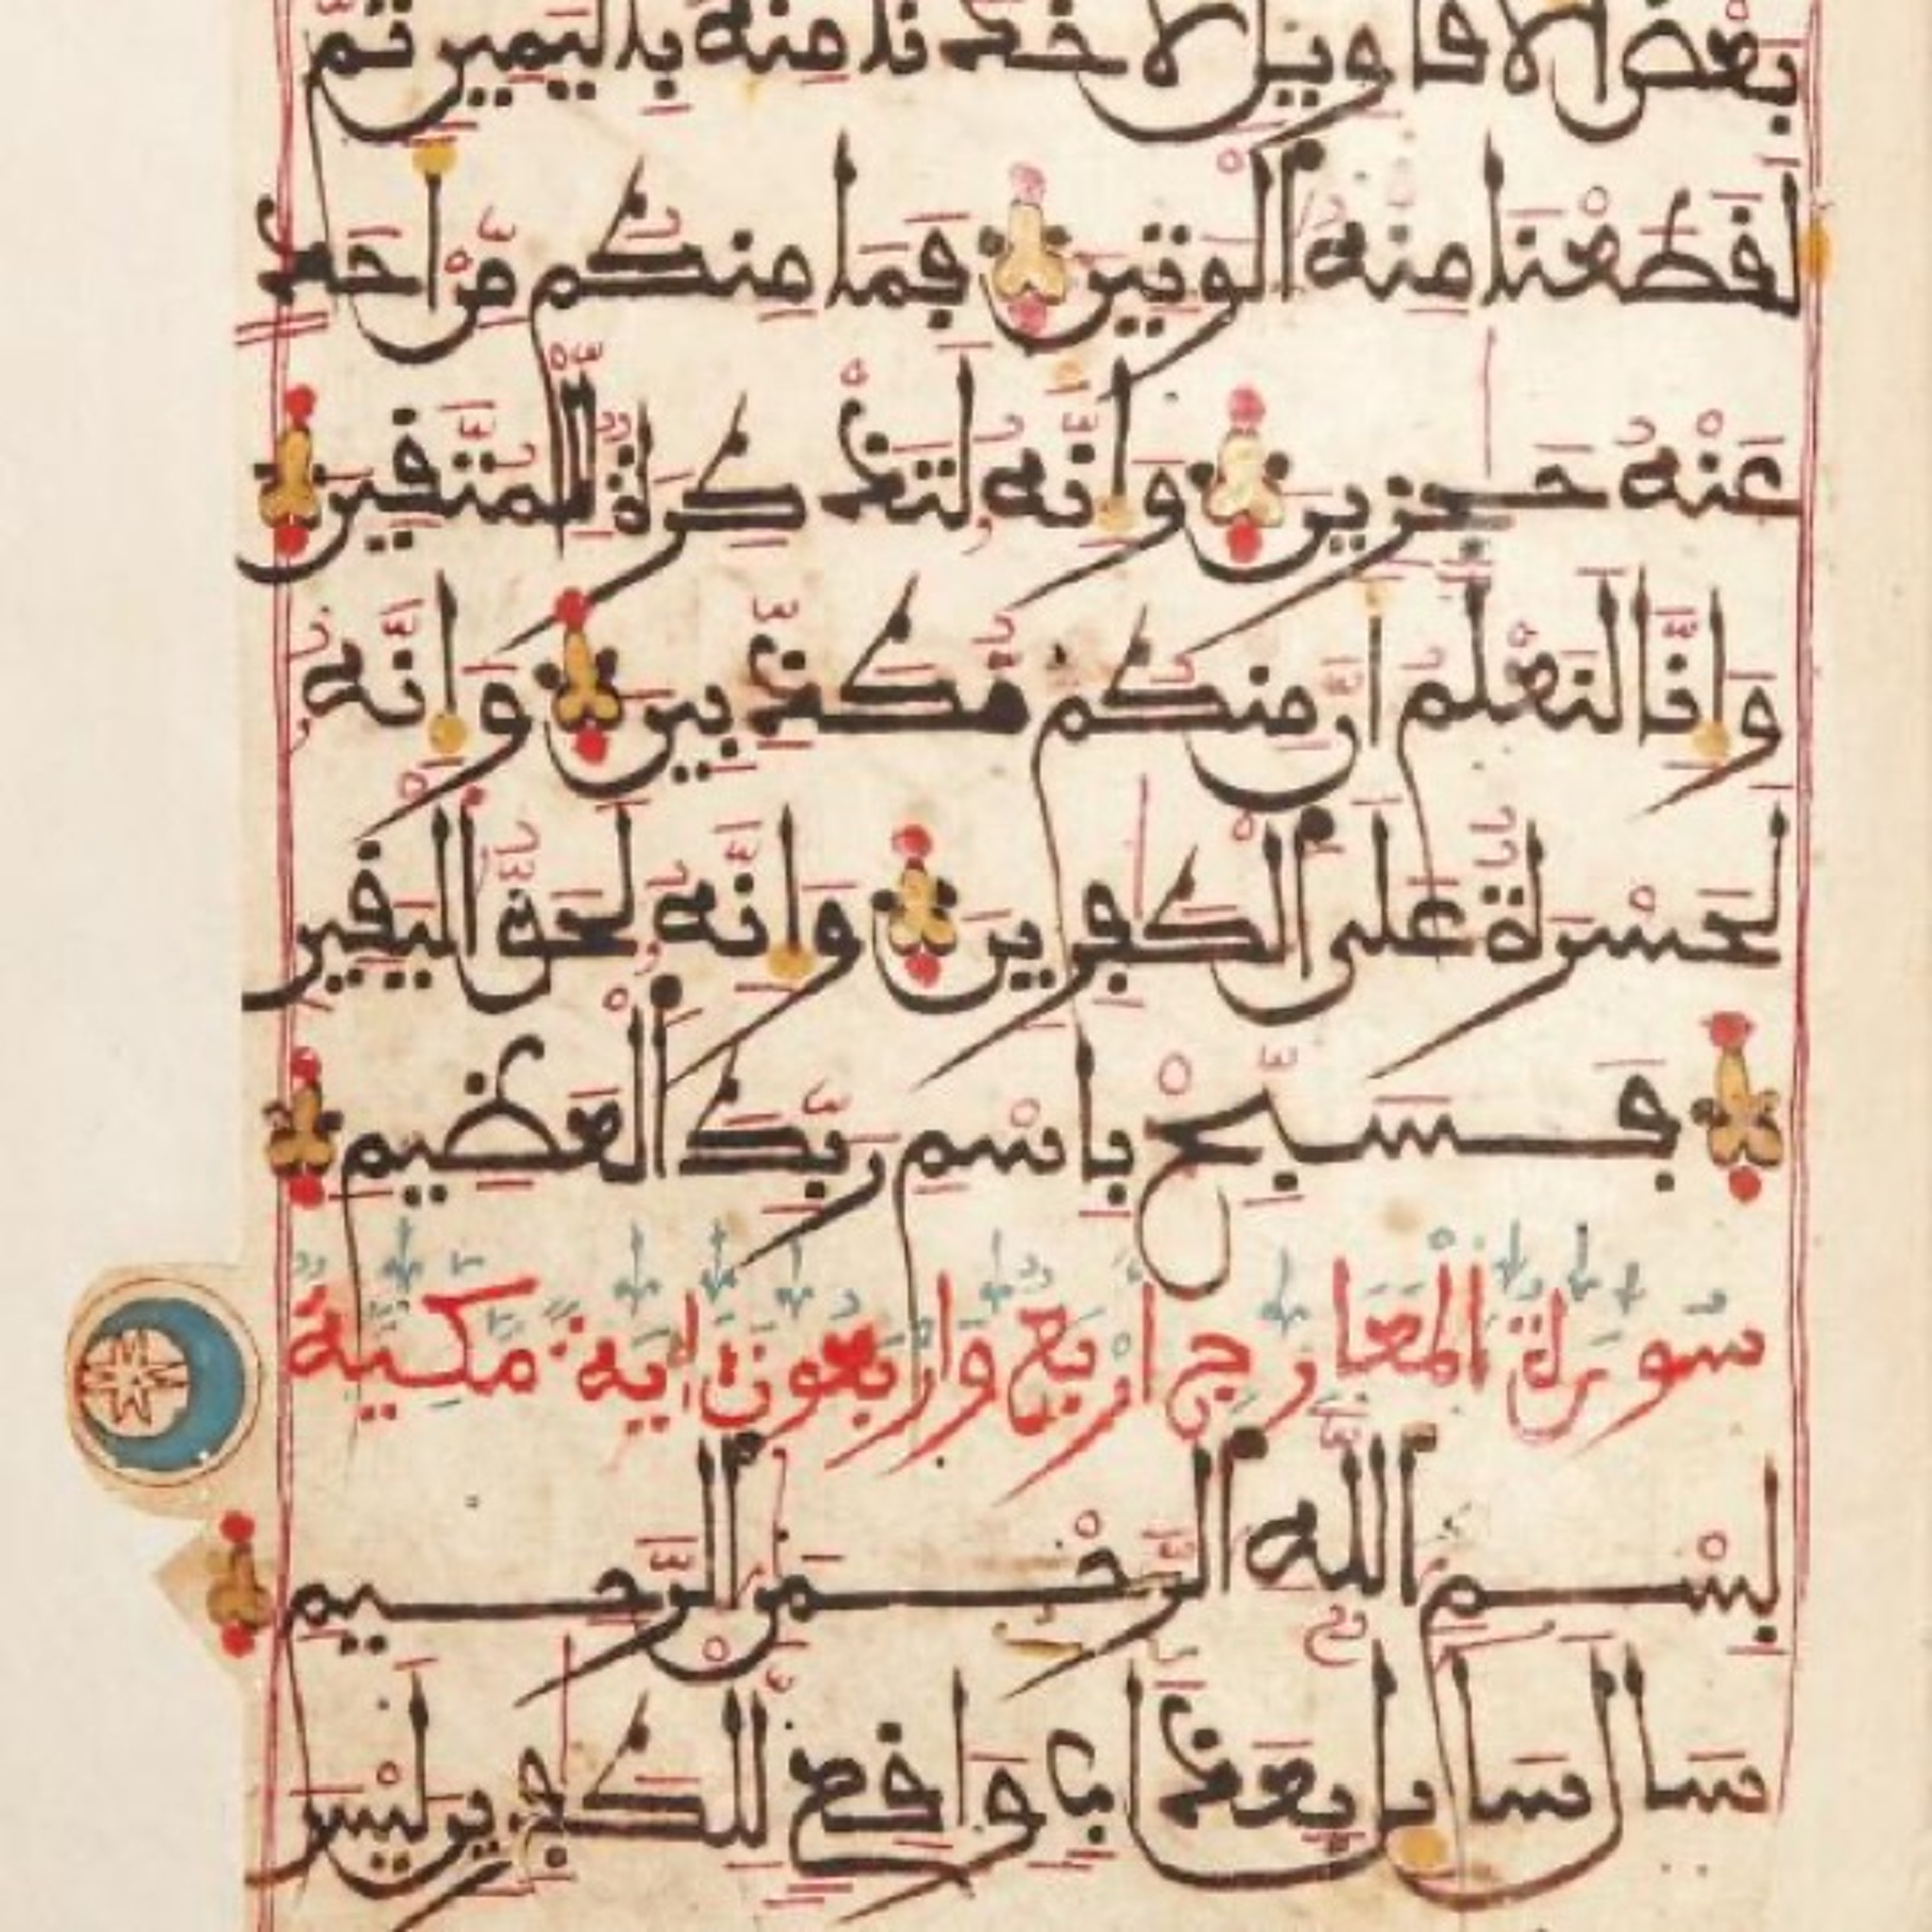 بَعْضَ الَاقَاوِيلِ لَأَخَذْنَا مِنْهُ بِالْيَمِينِ ثُمَّ
لَقَطَعْنَا مِنْهُ الْوَتِينَ فَمَا مِنكُم مِّنَ اَحَدٍ
عَنْهُ حَٰجِزِينَ وَإِنَّهُ لَتَذْكِرَةٌ لِّلْمُتَّقِينَ
وَإِنَّا لَنَعْلَمُ أَنَّ مِنكُم مُّكَذِّبِينَ وَإِنَّهُ
لَحَسْرَةٌ عَلَى الْكَٰفِرِينَ وَإِنَّهُ لَحَقُّ الْيَقِينِ
فَسَبِّحْ بِاسْمِ رَبِّكَ الْعَظِيمِ
سورة المعارج اربع واربعون اية مكية
بِسْمِ اللَّهِ الرَّحْمَٰنِ الرَّحِيمِ
سَالَ سَايِلٌ بِعَذَابٍ وَاقِعٍ لِّلْكَٰفِرِينَ لَيْسَ